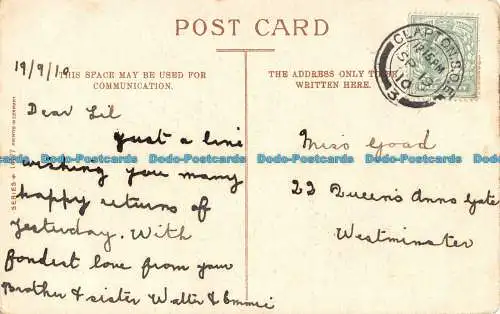 POST CARD
19/9/10
THIS SPACE MAY BE USED FOR
COMMUNICATION.
THE ADDRESS ONLY TO BE
WRITTEN HERE.
CLAPTON S.O.
12.15 PM
SP 19
10
3
PRINTED IN GERMANY
SERIES
Dear Lil
Just a line
wishing you many
happy returns of
yesturday. With
fondest love from your
Brother & sister Walter & Emmie
Miss Goad
22 Queen's Anns Gate
Westminster
Dodo-Postcards Dodo-Postcards Dodo-Postcards